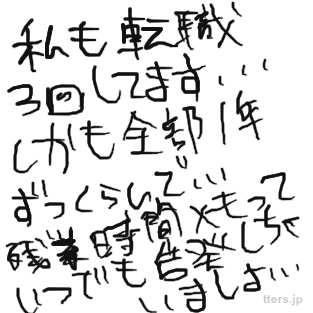 私も転職
3回してます…
しかも全部1年
ずつくらいで…
残業時間メモって
いつでも告発しちゃ
いましょい…
tters.jp